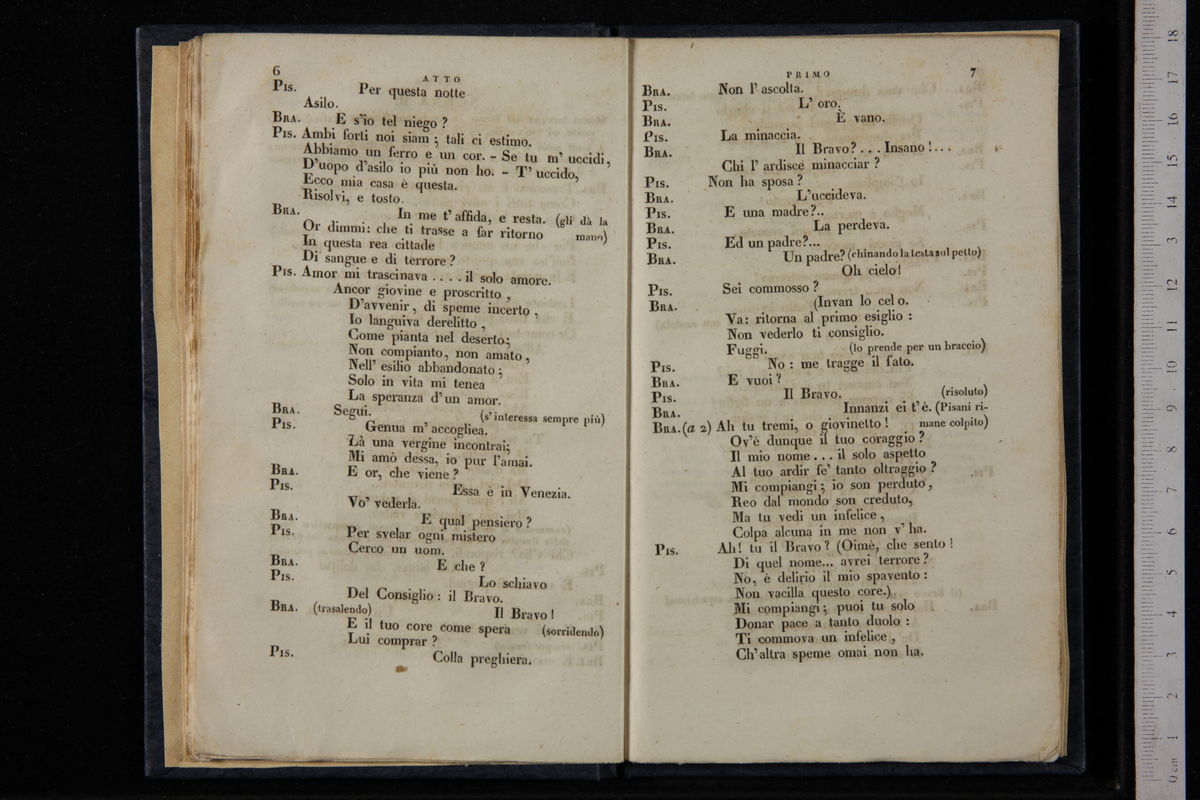 6
ATTO
Pis. Per questa notte
Asilo.
Bra. E s'io tel niego ?
Pis. Ambi forti noi siam ; tali ci estimo.
Abbiamo un ferro e un cor. - Se tu m' uccidi,
D'uopo d'asilo io più non ho. - T' uccido,
Ecco mia casa è questa.
Risolvi, e tosto.
Bra. In me t' affida, e resta. (gli dà la
Or dimmi: che ti trasse a far ritorno mano)
In questa rea cittade
Di sangue e di terrore ?
Pis. Amor mi trascinava . . . . il solo amore.
Ancor giovine e proscritto ,
D'avvenir, di speme incerto ,
Io languiva derelitto ,
Come pianta nel deserto;
Non compianto, non amato ,
Nell' esilio abbandonato ;
Solo in vita mi tenea
La speranza d' un amor.
Bra. Segui. (s' interessa sempre più)
Pis. Genua m' accogliea.
Là una vergine incontrai;
Mi amò dessa, io pur l'amai.
Bra. E or, che viene ?
Pis. Essa è in Venezia.
Vo' vederla.
Bra. E qual pensiero ?
Pis. Per svelar ogni mistero
Cerco un uom.
Bra. E che ?
Pis. Lo schiavo
Del Consiglio : il Bravo.
Bra. (trasalendo) Il Bravo !
E il tuo core come spera (sorridendo)
Lui comprar ?
Pis. Colla preghiera.
PRIMO
7
Bra. Non l' ascolta.
Pis. L' oro.
Bra. È vano.
Pis. La minaccia.
Bra. Il Bravo ? . . . Insano ! . . .
Chi l' ardisce minacciar ?
Pis. Non ha sposa ?
Bra. L'uccideva.
Pis. E una madre ?..
Bra. La perdeva.
Pis. Ed un padre?...
Bra. Un padre? (chinando la testa sul petto)
Oh cielo!
Pis. Sei commosso ?
Bra. (Invan lo cel o.
Va: ritorna al primo esiglio :
Non vederlo ti consiglio.
Fuggi. (lo prende per un braccio)
Pis. No : me tragge il fato.
Bra. E vuoi ?
Pis. Il Bravo. (risoluto)
Bra. Innanzi ei t'è. (Pisani ri-
Bra. (a 2) Ah tu tremi, o giovinetto ! mane colpito)
Ov'è dunque il tuo coraggio ?
Il mio nome . . . il solo aspetto
Al tuo ardir fe' tanto oltraggio ?
Mi compiangi ; io son perduto ,
Reo dal mondo son creduto,
Ma tu vedi un infelice ,
Colpa alcuna in me non v' ha.
Pis. Ah! tu il Bravo ? (Oimè, che sento !
Di quel nome... avrei terrore ?
No, è delirio il mio spavento :
Non vacilla questo core.)
Mi compiangi ; puoi tu solo
Donar pace a tanto duolo :
Ti commova un infelice ,
Ch' altra speme omai non ha.
0 cm 1 2 3 4 5 6 7 8 9 10 11 12 13 14 15 16 17 18